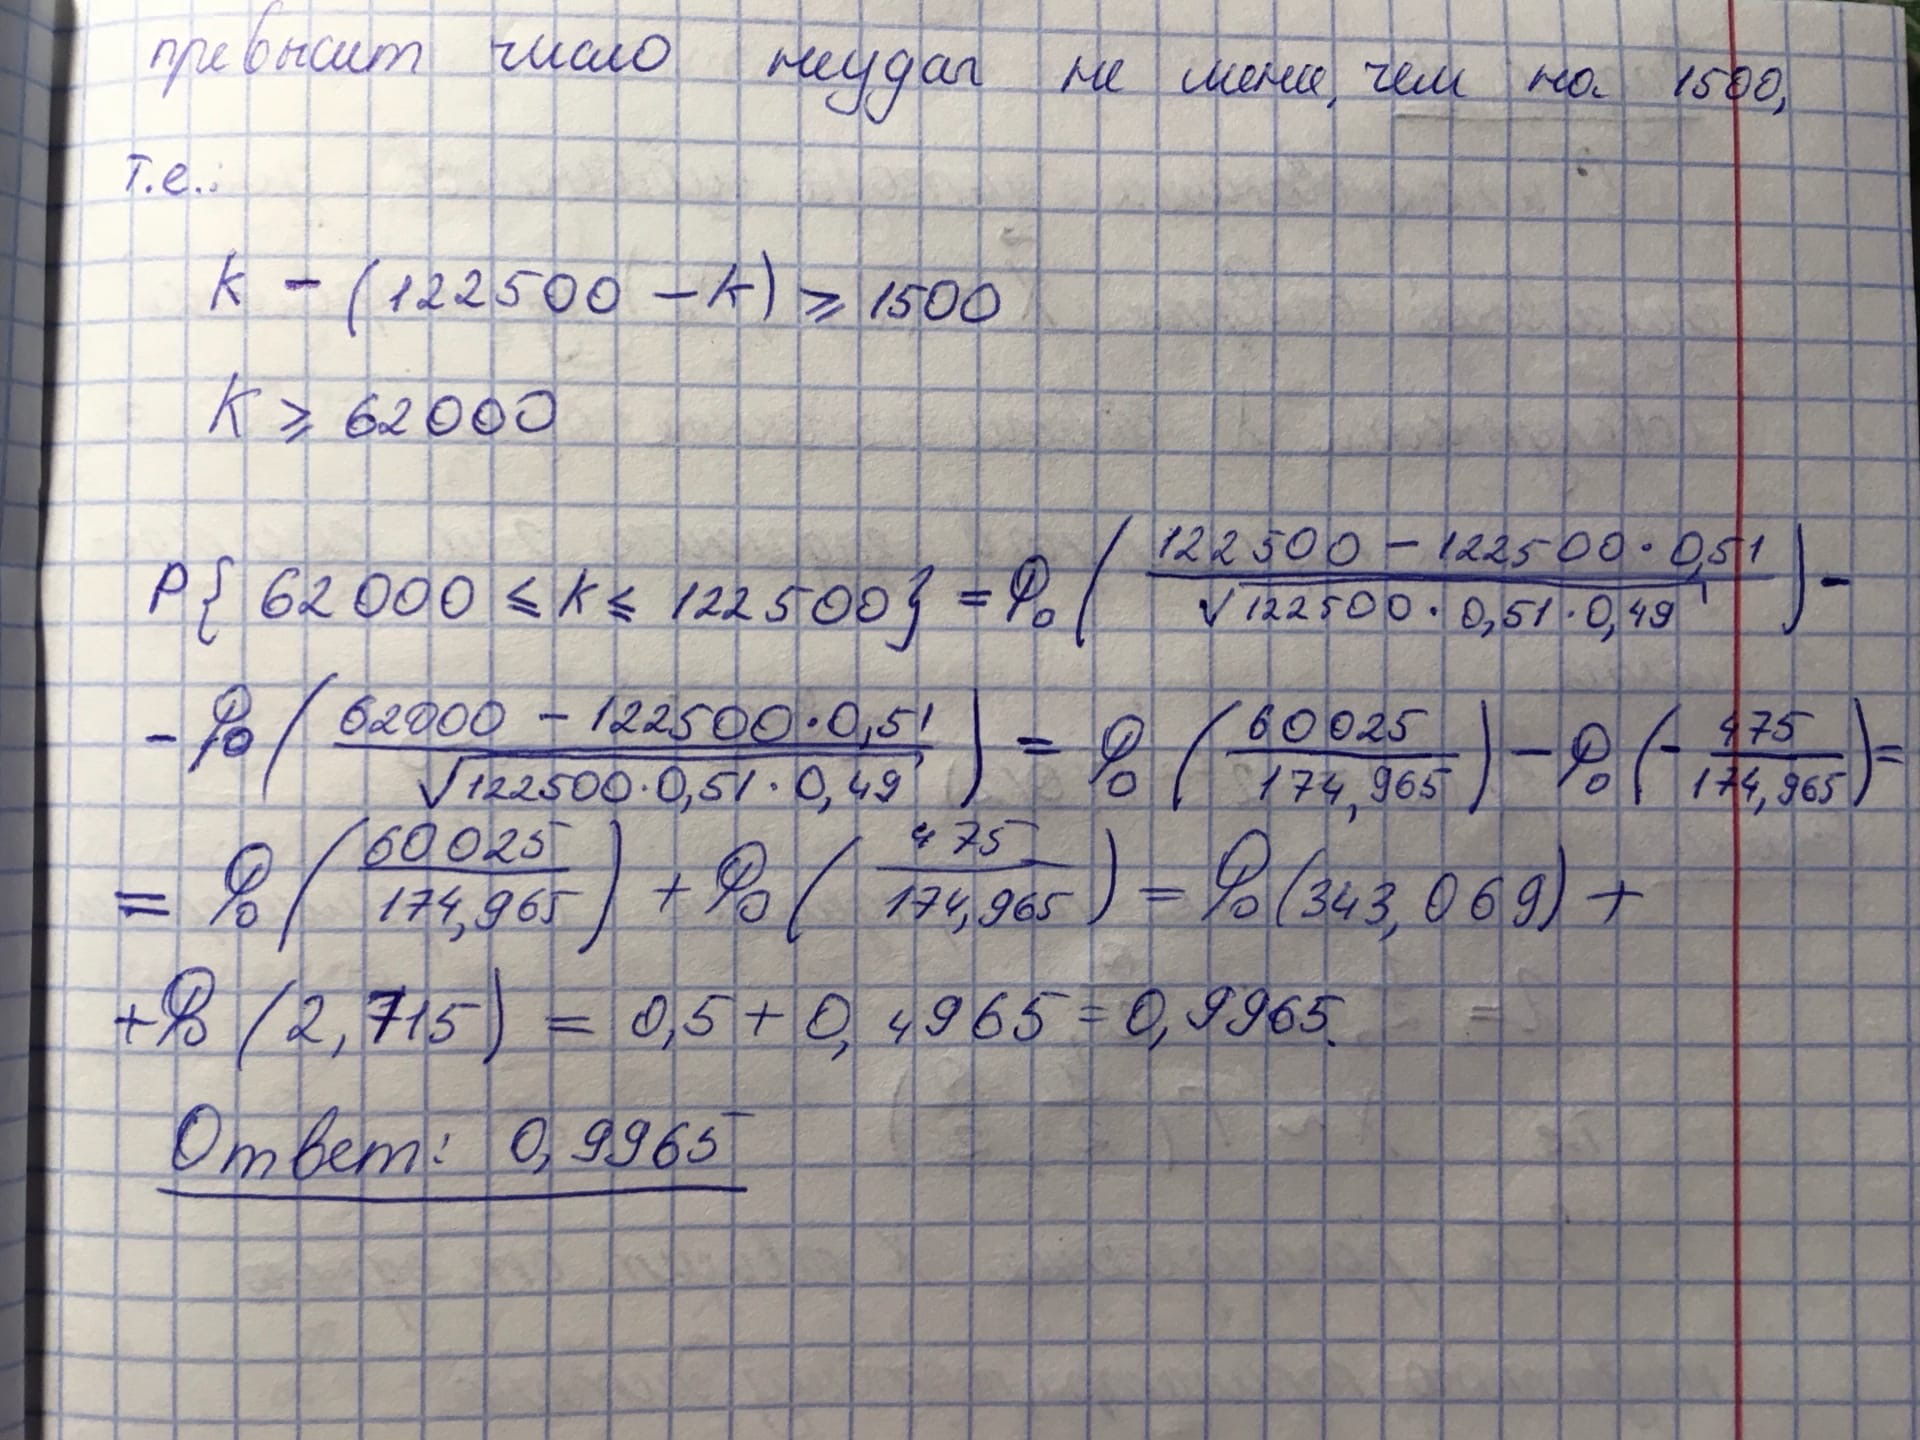 превысит число неудач не менее, чем на 1500,
т.е.:
k - (122500 - k) ⩾ 1500
k ⩾ 62000
P{ 62000 ⩽ k ⩽ 122500} = Φ₀ ( (122500 - 122500 · 0,51) / √(122500 · 0,51 · 0,49) ) -
- Φ₀ ( (62000 - 122500 · 0,51) / √(122500 · 0,51 · 0,49) ) = Φ₀ ( 60025 / 174,965 ) - Φ₀ ( - 475 / 174,965 ) =
= Φ₀ ( 60025 / 174,965 ) + Φ₀ ( 475 / 174,965 ) = Φ₀ (343,069) +
+ Φ₀ (2,715) = 0,5 + 0,4965 = 0,9965.
Ответ: 0,9965